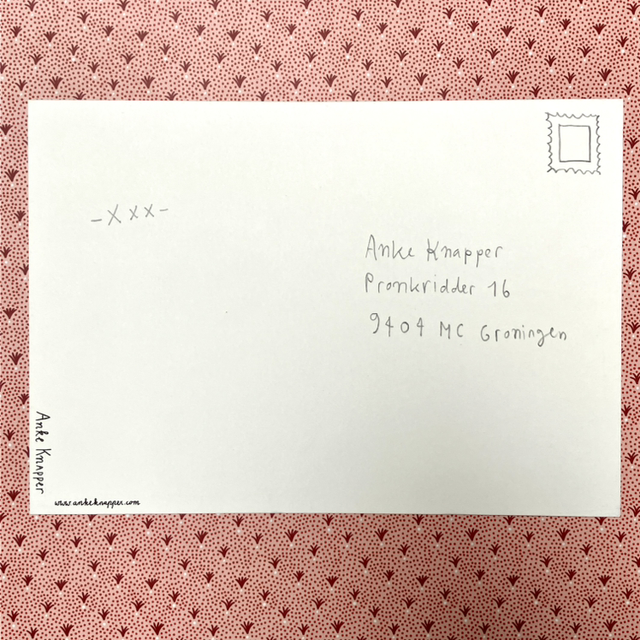 -XXX-
Anke Knapper
Pronkridder 16
9404 MC Groningen
Anke Knapper
www.ankeknapper.com